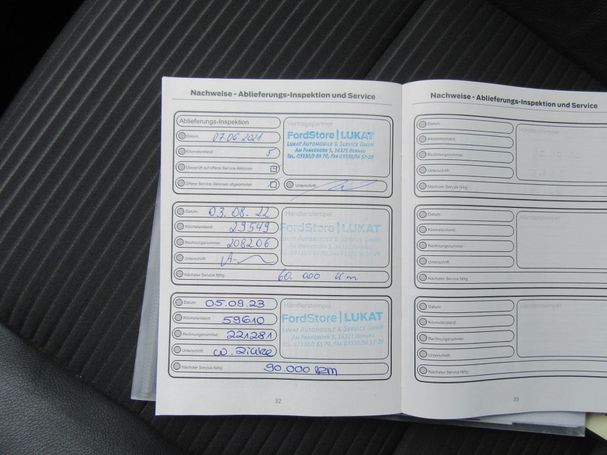 Nachweise - Ablieferungs-Inspektion und Service
Ablieferungs-Inspektion
Datum 07.06.2021
Kilometerstand 5
Überprüft auf offene Service-Aktionen
Offene Service-Aktionen abgearbeitet
Vertragspartner
FordStore | LUKAT
LUKAT AUTOMOBILE & SERVICE GMBH
16321 BERNAU
Unterschrift
Datum 03.08.22
Kilometerstand 29549
Rechnungsnummer 208206
Unterschrift
Nächster Service fällig 60.000 Km
Händlerstempel
FordStore | LUKAT
LUKAT AUTOMOBILE & SERVICE GMBH
Datum 05.09.23
Kilometerstand 59610
Rechnungsnummer 221281
Unterschrift
Nächster Service fällig 90.000 km
Händlerstempel
FordStore | LUKAT
LUKAT AUTOMOBILE & SERVICE GMBH
32
Nachweise - Ablieferungs-Inspektion und Service
Datum
Kilometerstand
Rechnungsnummer
Unterschrift
Nächster Service fällig
Datum
Kilometerstand
Rechnungsnummer
Unterschrift
Nächster Service fällig
Datum
Kilometerstand
Rechnungsnummer
Unterschrift
Nächster Service fällig
33